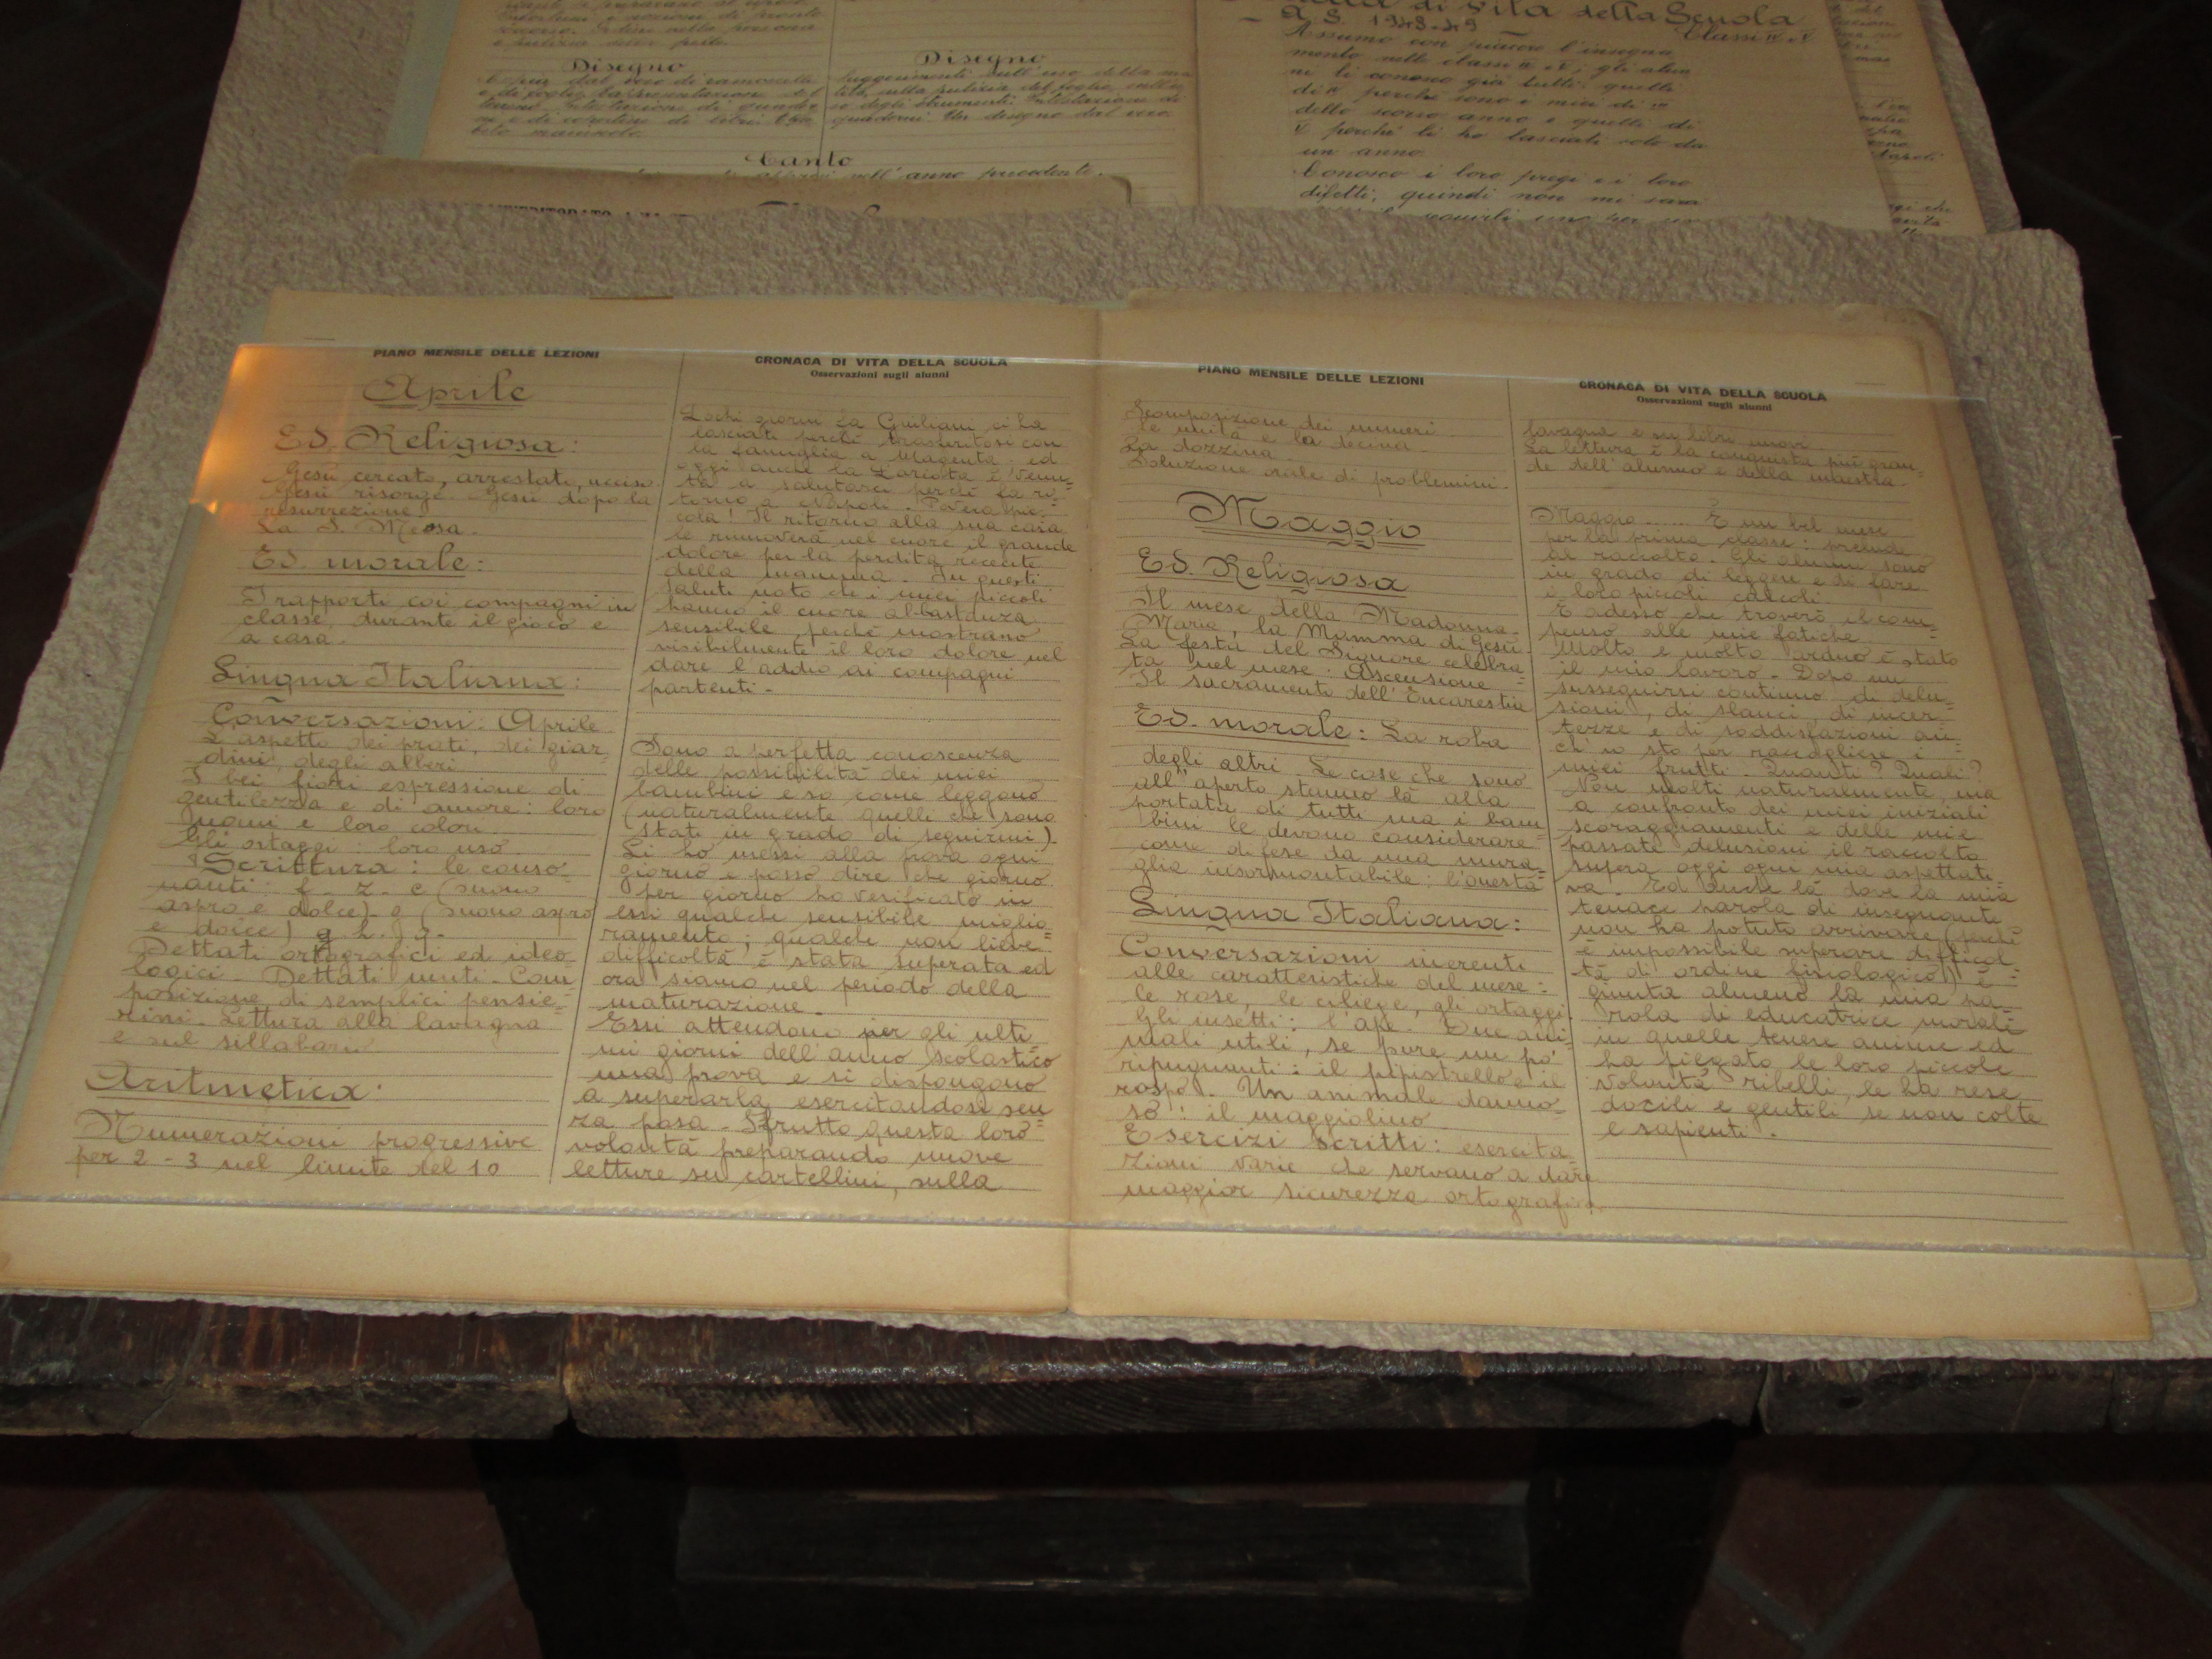 Disegno
Disegno
Canto
di Vita della Scuola
A. S. 1948-49
Classi IV e V
Assumo con piacere l'insegna
mento nelle classi IV e V; gli alun
ni li conosco già tutti: quelli
di IV perché sono i miei di III
dello scorso anno e quelli di
V perché li ho lasciati solo da
un anno.
Conosco i loro pregi e i loro
difetti, quindi non mi sarà
PIANO MENSILE DELLE LEZIONI
Aprile
Ed. Religiosa:
Gesù cercato, arrestato, ucciso.
Gesù risorge. Gesù dopo la
resurrezione.
La S. Messa.
Ed. morale:
I rapporti coi compagni in
classe, durante il gioco e
a casa.
Lingua Italiana:
Conversazioni: Aprile
L'aspetto dei prati, dei giar-
dini, degli alberi
I bei fiori espressione di
gentilezza e di amore: loro
nomi e loro colori
Gli ortaggi: loro uso.
Scrittura: le conso-
nanti: f. z. c (suono
aspro e dolce) g (suono aspro
e dolce) g. h. q.
Dettati ortografici ed ideo
logici. Dettati muti. Com
posizione di semplici pensie-
rini. Lettura alla lavagna
e sul sillabario
Aritmetica:
Numerazioni progressive
per 2 - 3 nel limite del 10
CRONACA DI VITA DELLA SCUOLA
Osservazioni sugli alunni
giorni fa Giuliani ci ha
lasciati perché trasferitosi con
la famiglia a Magenta ed
oggi anche la è venu-
ta a salutarci perché fa ri-
torno a Napoli. Povera pic-
cola! Il ritorno alla sua casa
le rinnoverà nel cuore il grande
dolore per la perdita recente
della mamma. In questi
saluti noto che i miei piccoli
hanno il cuore abbastanza
sensibile perché mostrano
visibilmente il loro dolore nel
dare l'addio ai compagni
partenti.
Sono a perfetta conoscenza
delle possibilità dei miei
bambini e so come leggono
(naturalmente quelli che sono
stati in grado di seguirmi).
Li ho messi alla prova ogni
giorno e posso dire che giorno
per giorno ho verificato in
essi qualche sensibile miglio-
ramento; qualche non lieve
difficoltà è stata superata ed
ora siamo nel periodo della
maturazione.
Essi attendono per gli ulti-
mi giorni dell'anno scolastico
una prova e si dispongono
a superarla, esercitandosi sen-
za posa. Sfrutto questa loro
volontà preparando nuove
letture su cartellini, sulla
PIANO MENSILE DELLE LEZIONI
Scomposizione dei numeri
le unità e la decina.
La dozzina
Soluzione orale di problemini.
Maggio
Ed. Religiosa
Il mese della Madonna.
Maria, la Mamma di Gesù.
La festa del Signore celebra-
ta nel mese: Ascensione
Il sacramento dell'Eucarestia
Ed. morale: La roba
degli altri. Le cose che sono
all'aperto stanno là alla
portata di tutti ma i bam-
bini le devono considerare
come difese da una mura-
glia insormontabile: l'onestà
Lingua Italiana:
Conversazioni inerenti
alle caratteristiche del mese:
le rose, le ciliege, gli ortaggi.
Gli insetti: l'ape. Due ani-
mali utili, se pure un po'
ripugnanti: il pipistrello e il
rospo. Un animale danno-
so: il maggiolino
Esercizi scritti: esercita-
zioni varie che servano a dare
maggior sicurezza ortografica.
CRONACA DI VITA DELLA SCUOLA
Osservazioni sugli alunni
lavagna e su libri nuovi
La lettura è la conquista più gran-
de dell'alunno e della maestra
Maggio...... È un bel mese
per la prima classe: prelude
al raccolto. Gli alunni sono
in grado di leggere e di fare
i loro piccoli calcoli
È adesso che troverò il com-
penso alle mie fatiche
Molto e molto arduo è stato
il mio lavoro. Dopo un
susseguirsi continuo di delu-
sioni, di slanci, di incer-
tezze e di soddisfazioni an-
ch'io sto per raccogliere i
miei frutti. Quanti? Quali?
Non molti naturalmente, ma
a confronto dei miei iniziali
scoraggiamenti e delle mie
passate delusioni il raccolto
supera oggi ogni mia aspettati
va. Ed anche là dove la mia
tenace parola di insegnante
non ha potuto arrivare (perché
è impossibile superare difficol-
tà di ordine fisiologico) è
giunta almeno la mia pa-
rola di educatrice morale
in quelle tenere anime ed
ha piegato le loro piccole
volontà ribelli, le ha rese
docili e gentili se non colte
e sapienti.